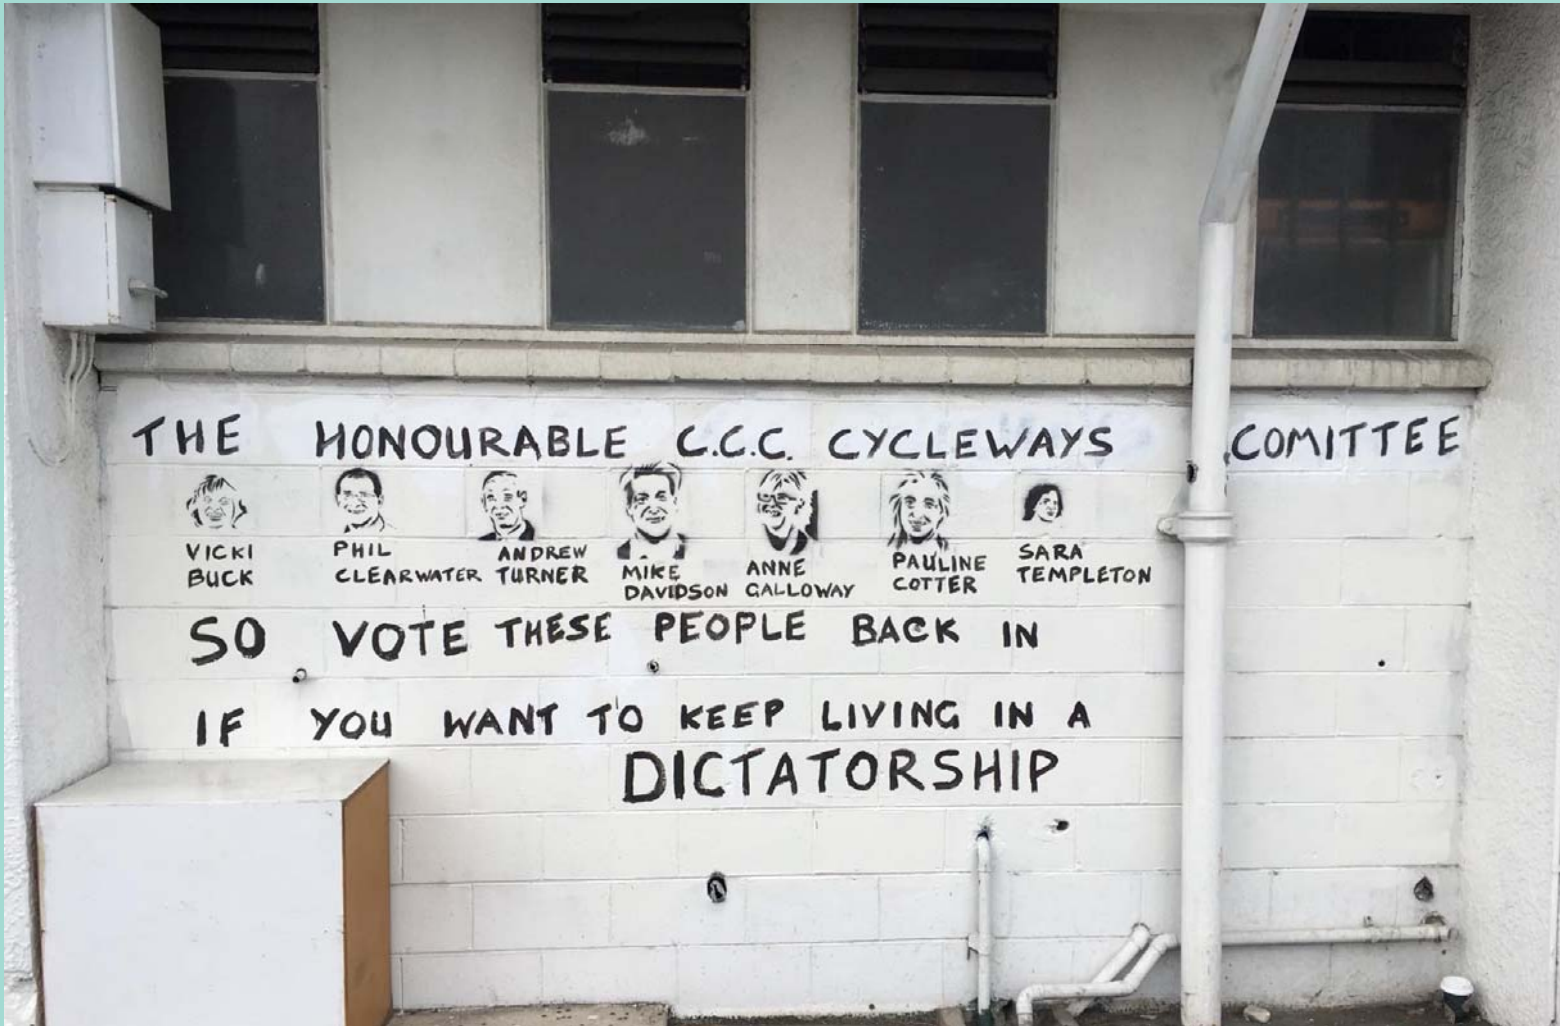 THE HONOURABLE C.C.C. CYCLEWAYS COMITTEE
VICKI
BUCK
PHIL
CLEARWATER
ANDREW
TURNER
MIKE
DAVIDSON
ANNE
GALLOWAY
PAULINE
COTTER
SARA
TEMPLETON
SO VOTE THESE PEOPLE BACK IN
IF YOU WANT TO KEEP LIVING IN A
DICTATORSHIP